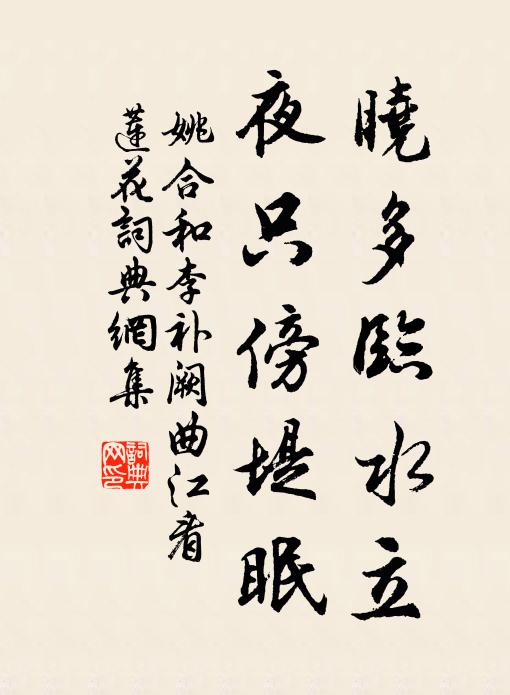 曉多臨水立
夜只傍堤眠
姚合和李补阙曲江看
蓮花詞典網集
詞典
网印